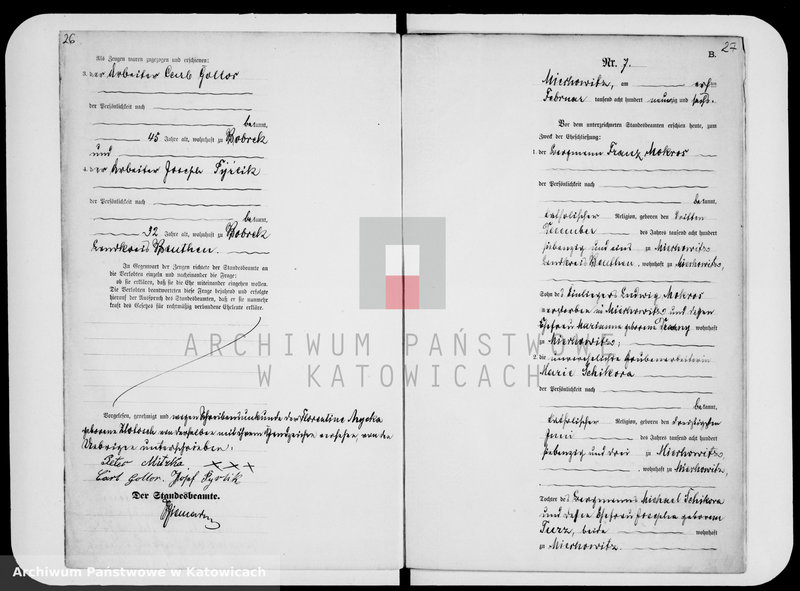 26
Als Zeugen waren zugezogen und erschienen:
3. der Arbeiter Carl Gollor
der Persönlichkeit nach
bekannt,
45 Jahre alt, wohnhaft zu Bobrek
und
4. der Arbeiter Joseph
der Persönlichkeit nach
bekannt,
32 Jahre alt, wohnhaft zu Bobrek
Landkreis Beuthen.
In Gegenwart der Zeugen richtete der Standesbeamte an
die Verlobten einzeln und nacheinander die Frage:
ob sie erklären, daß sie die Ehe miteinander eingehen wollen.
Die Verlobten beantworteten diese Frage bejahend und erfolgte
hierauf der Ausspruch des Standesbeamten, daß er sie nunmehr
kraft des Gesetzes für rechtmäßig verbundene Eheleute erkläre.
Vorgelesen, genehmigt und wegen Schreibensunkunde der Florentine
geborene von derselben mit ihrem Handzeichen versehen, von den
Uebrigen unterschrieben:
Peter Mitzka. + + +
Carl Gollor. Josef Pyrlik
Der Standesbeamte.
27
B.
Nr. 7.
Miechowitz, am ersten
Februar tausend acht hundert neunzig und sechs.
Vor dem unterzeichneten Standesbeamten erschien heute, zum
Zweck der Eheschließung:
1. der Bergmann Franz Mokros
der Persönlichkeit nach
bekannt,
katholischer Religion, geboren den dritten
Dezember des Jahres tausend acht hundert
siebenzig und eins zu Miechowitz
Landkreis Beuthen, wohnhaft zu Miechowitz,
Sohn des Ludwig Mokros
verstorben in Miechowitz und dessen
Ehefrau Marianne geborene wohnhaft
zu Miechowitz;
2. die unverehelichte Grubenarbeiterin
Marie Schikora
der Persönlichkeit nach
bekannt,
katholischer Religion, geboren den dreißigsten
Juni des Jahres tausend acht hundert
siebenzig und drei zu Miechowitz,
wohnhaft zu Miechowitz,
Tochter des Bergmanns Michael Schikora
und dessen Ehefrau Josepha geborene
beide wohnhaft
zu Miechowitz
ARCHIWUM PAŃSTWOWE
W KATOWICACH
Archiwum Państwowe w Katowicach